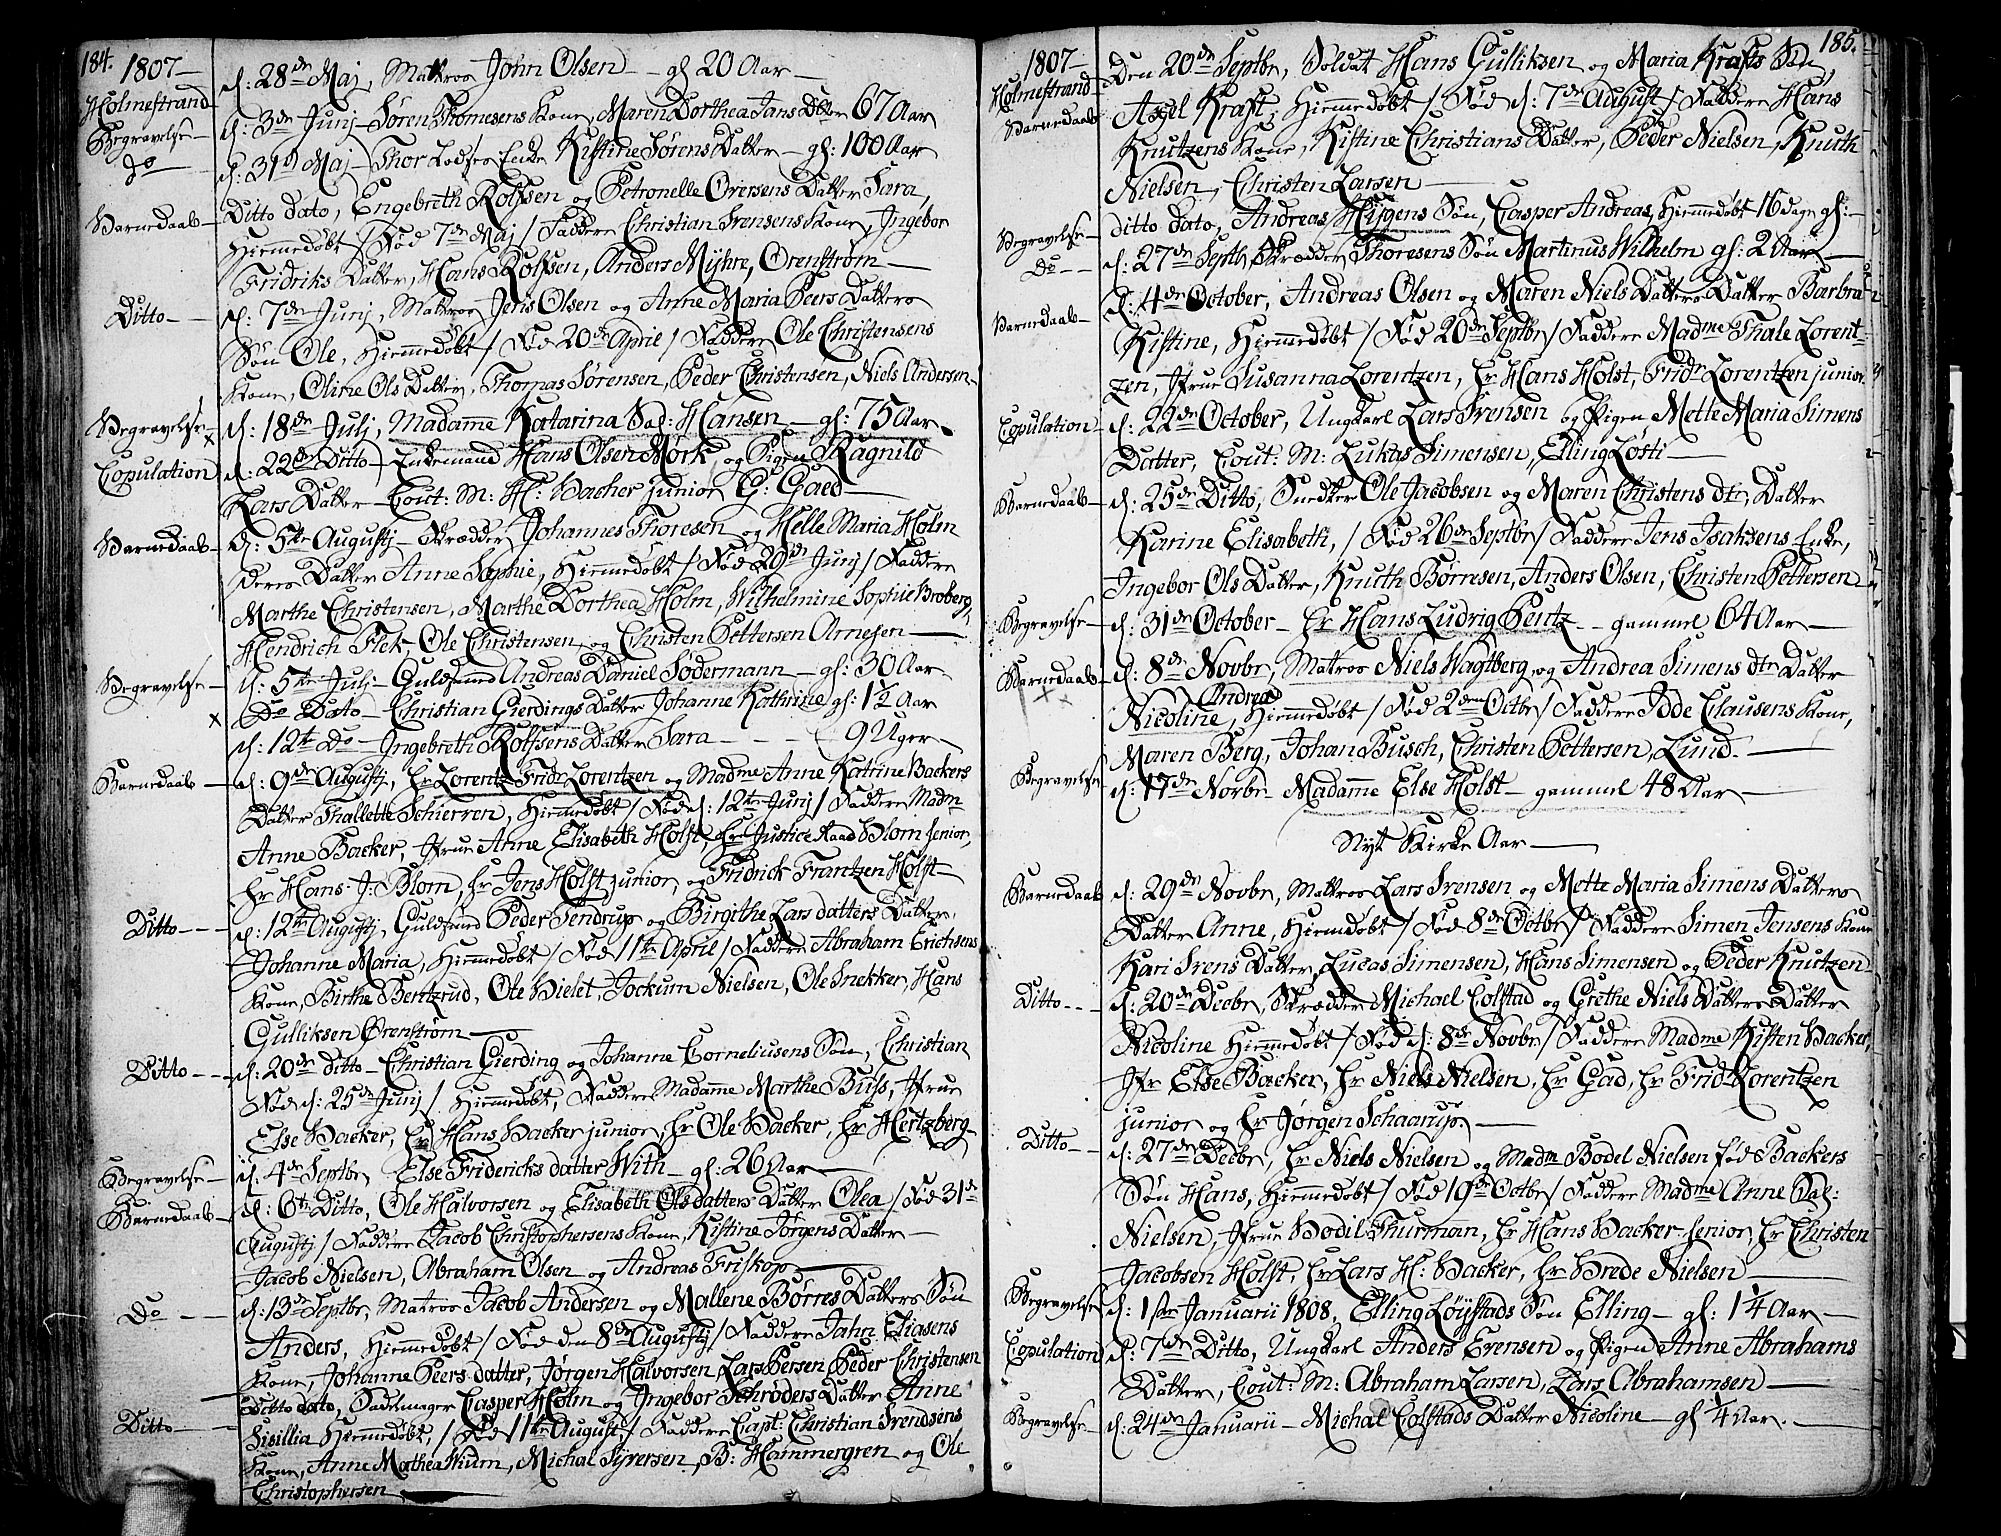 184. 1807
Holmestrand
Begravelse
do
d: 28de Maj, Matros John Olsen gl 20 Aar
d: 3de Junj Søren Thomesens Kone, Maren Dorthea Jans Dtter 67 Aar
d: 31d Maj Thor Lodses Enke Kistine Sørens Datter gl: 100 Aar
Barnedaab
Ditto dato, Engebreth Rolfsen og Petronelle Oversens Datter Sara,
Hiemmedøbt / Fød 7de Maj / Faddere Christian Svensens Kone, Ingebor
Fridriks Datter, Hans Rolfsen, Anders Myhre, Orenstrøm
Ditto
d: 7de Junj, Matros Jens Olsen og Anne Maria Peers Datters
Søn Ole, Hiemmedøbt / Fød 20de April / Faddere Ole Christensens
Kone, Oline Ols Datter, Thomas Sørensen, Peder Christensen, Niels Andersen
Begravelse
d: 18de Julj, Madamme Katarina Sal: Hansen gl: 75 Aar
Copulation
d: 22de Ditto Enkemand Hans Olsen Mørk, og Pigen Ragnild
Lars Datter Cout: M: H: Backer junior G: Gaed
Barnedaab
d: 5te Augustj Skrædder Johannes Thoresen og Helle Maria Holm
deres Datter Anne Sophie, Hiemmedøbt / Fød 29de Junj / Faddere
Marthe Christensen, Marthe Dorthea Holm, Wilhelmine Sophie Broberg,
Hendrich Flek, Ole Christensen, og Christen Pettersen Arnesen
Begravelse
d: 5te Julj Guldsmed Andreas Daniel Södermann gl: 30 Aar
Do Dato Christian Gierdings Datter Johanne Kathrine gl: 1½ Aar
d: 12te Do Ingebreth Rolfsens Datter Sara 9 Uger
Barnedaab
d: 9de Augustj, Hr Lorentz Fridr Lorentzen og Madme Anne Katrine Backers
Datter Thallette Schierven, Hiemmedøbt / Fød d: 12te Junj / Faddere Madm
Anne Backer, Jfrue Anne Elisabeth Holst, Hr Justice Raad Blom senior,
Hr Hans J: Blom, Hr Jens Holst junior, og Fridrick Frantzen Holst
Ditto
d: 12te Augustj, Guldsmed Peder Sendrup og Birgithe Lars datters Datter
Johanne Maria, Hiemmedøbt / Fød 11te April / Faddere Abraham Erichsens
Kone, Birthe Bentzrud, Ole Hielet, Jockum Nielsen, Ole Snekker, Hans
Gulliksen Ørenstrøm
Ditto
d: 20de ditto Christian Gierding og Johanne Corneliusens Søn, Christian
Fød d: 25de Junj / Hiemmedøbt, Faddere Madamme Marthe Buss, Jfrue
Else Backer, Hr Hans Backer junior, Hr Ole Backer, Hr Hertzberg
Begravelse
d: 4de Septbr, Else Fridericks datter With gl: 26 Aar
Barnedaab
d: 6te Ditto, Ole Halvorsen og Elisabeth Ols datters Datter Olea / Fød 31de
Augustj / Faddere Jacob Christophersens Kone, Kistine Jørgens Datter
Jacob Nielsen, Abraham Olsen og Andreas Friskop
Do
d: 13de Septbr, Matros Jacob Andersen og Mallene Børres Datters Søn
Anders, Hiemmedøbt / Fød den 8de Augustj / Faddere Jahn Eliasens
Kone, Johanne Peers datter, Jørgen Halvorsen, Lars Persen Peder Christensen
Ditto
Ditto dato, Sadelmager Casper Holm og Ingebor Schrøders Datter Anne
Sisillia Hiemmedøbt, / Fød 11te August / Faddere Capt: Christian Svendsens
Kone, Anne Morthea Wium, Michal Syversen, B: Hammergren og Ole
Christophersen
185.
1807
Holmestrand
Barnedaab
Den 20de Septbr, Soldat Hans Gulliksen og Maria Krafts Søn,
Axel Kraft, Hiemmedøbt / Fød d: 7de August / Faddere Hans
Knutzens Kone, Kistine Christians Datter, Peder Nielsen, Knuth
Nielsen, Christen Larsen
Begravelse
ditto dato, Andreas Hygens Søn, Casper Andreas, Hiemmedøbt 16 dage gl:
Do
d: 27de Septb, Skrædder Thoresens Søn Martinus Wilhelm gl: 2 Aar
Barnedaab
d: 4de October, Andreas Olsen og Maren Niels Datters Datter Barbra
Kistine, Hiemmedøbt / Fød 20de Septbr / Faddere Madme Thale Lorent-
zen, Jfrue Susanna Lorentzen, Hr Hans Holst, Fridr Lorentzen junior
Copulation
d: 22de October, Ungkarl Lars Svensen og Pigen Mette Maria Simens
Datter, Cout: M: Lukas Simensen, Elling Løsti
Barnedaab
d: 25de Ditto, Snedker Ole Jacobsen og Maren Christens dtr, Datter
Karine Elisabeth, / Fød 26de Septbr / Faddere Jens Isaksens Enke,
Ingebor Ols Datter, Knuth Børresen, Anders Olsen, Christen Pettersen
Begravelse
d: 31de October Hr Hans Ludvig Pentz gammel 64 Aar
Barnedaab
d: 8de Novbr, Matros Niels Wagtberg, og Andrea Simens dtr Datter
Andrea
Nicoline, Hiemmedøbt / Fød 2den Octbr / Faddere Idde Clausens Kone,
Maren Berg, Johan Busch, Christen Pettersen, Lund.
Begravelse
d: 17de Novbr Madamme Else Holst gammel 48 Aar
Nyt Kirke Aar
Barnedaab
d: 29de Novbr, Matros Lars Svensen og Mette Maria Simens Datters
Datter Anne, Hiemdøbt / Fød 8de Octbr / Faddere Simen Jensens Kone
Kari Svens Datter, Lucas Simensen, Hans Simensen og Peder Knutzen
Ditto
d: 20de Decbr, Skrædder Michael Colstad og Grethe Niels Datters Datter
Nicoline Hiemmedøbt / Fød d: 8de Novbr / Faddere Madme Kisten Backer,
Jfr Else Backer, Hr Niels Nielsen, Hr Gad, Hr Fridr Lorentzen
junior og Hr Jørgen Schaarup
Ditto
d: 27de Decbr, Hr Niels Nielsen og Madm Bodel Nielsen fød Backers
Søn Hans, Hiemmedøbt / Fød 19de Octbr / Faddere Madme Anne Sal:
Nielsen, Jfrue Bodil Thurmann, Hr Hans Backer senior, Hr Christen
Jacobsen Holst, Hr Lars H: Backer, Hr Brede Nielsen
Begravelse
d: 1ste Januarii 1808, Elling Løystads Søn Elling gl: 1¼ Aar
Copulation
d: 7de Ditto, Ungkarl Anders Evensen og Pigen Anne Abrahams
Datter, Cout: M: Abraham Larsen, Lars Abrahamsen
Begravelse
d: 24de Januarii Michal Colstads Datter Nicoline gl ¼ Aar.